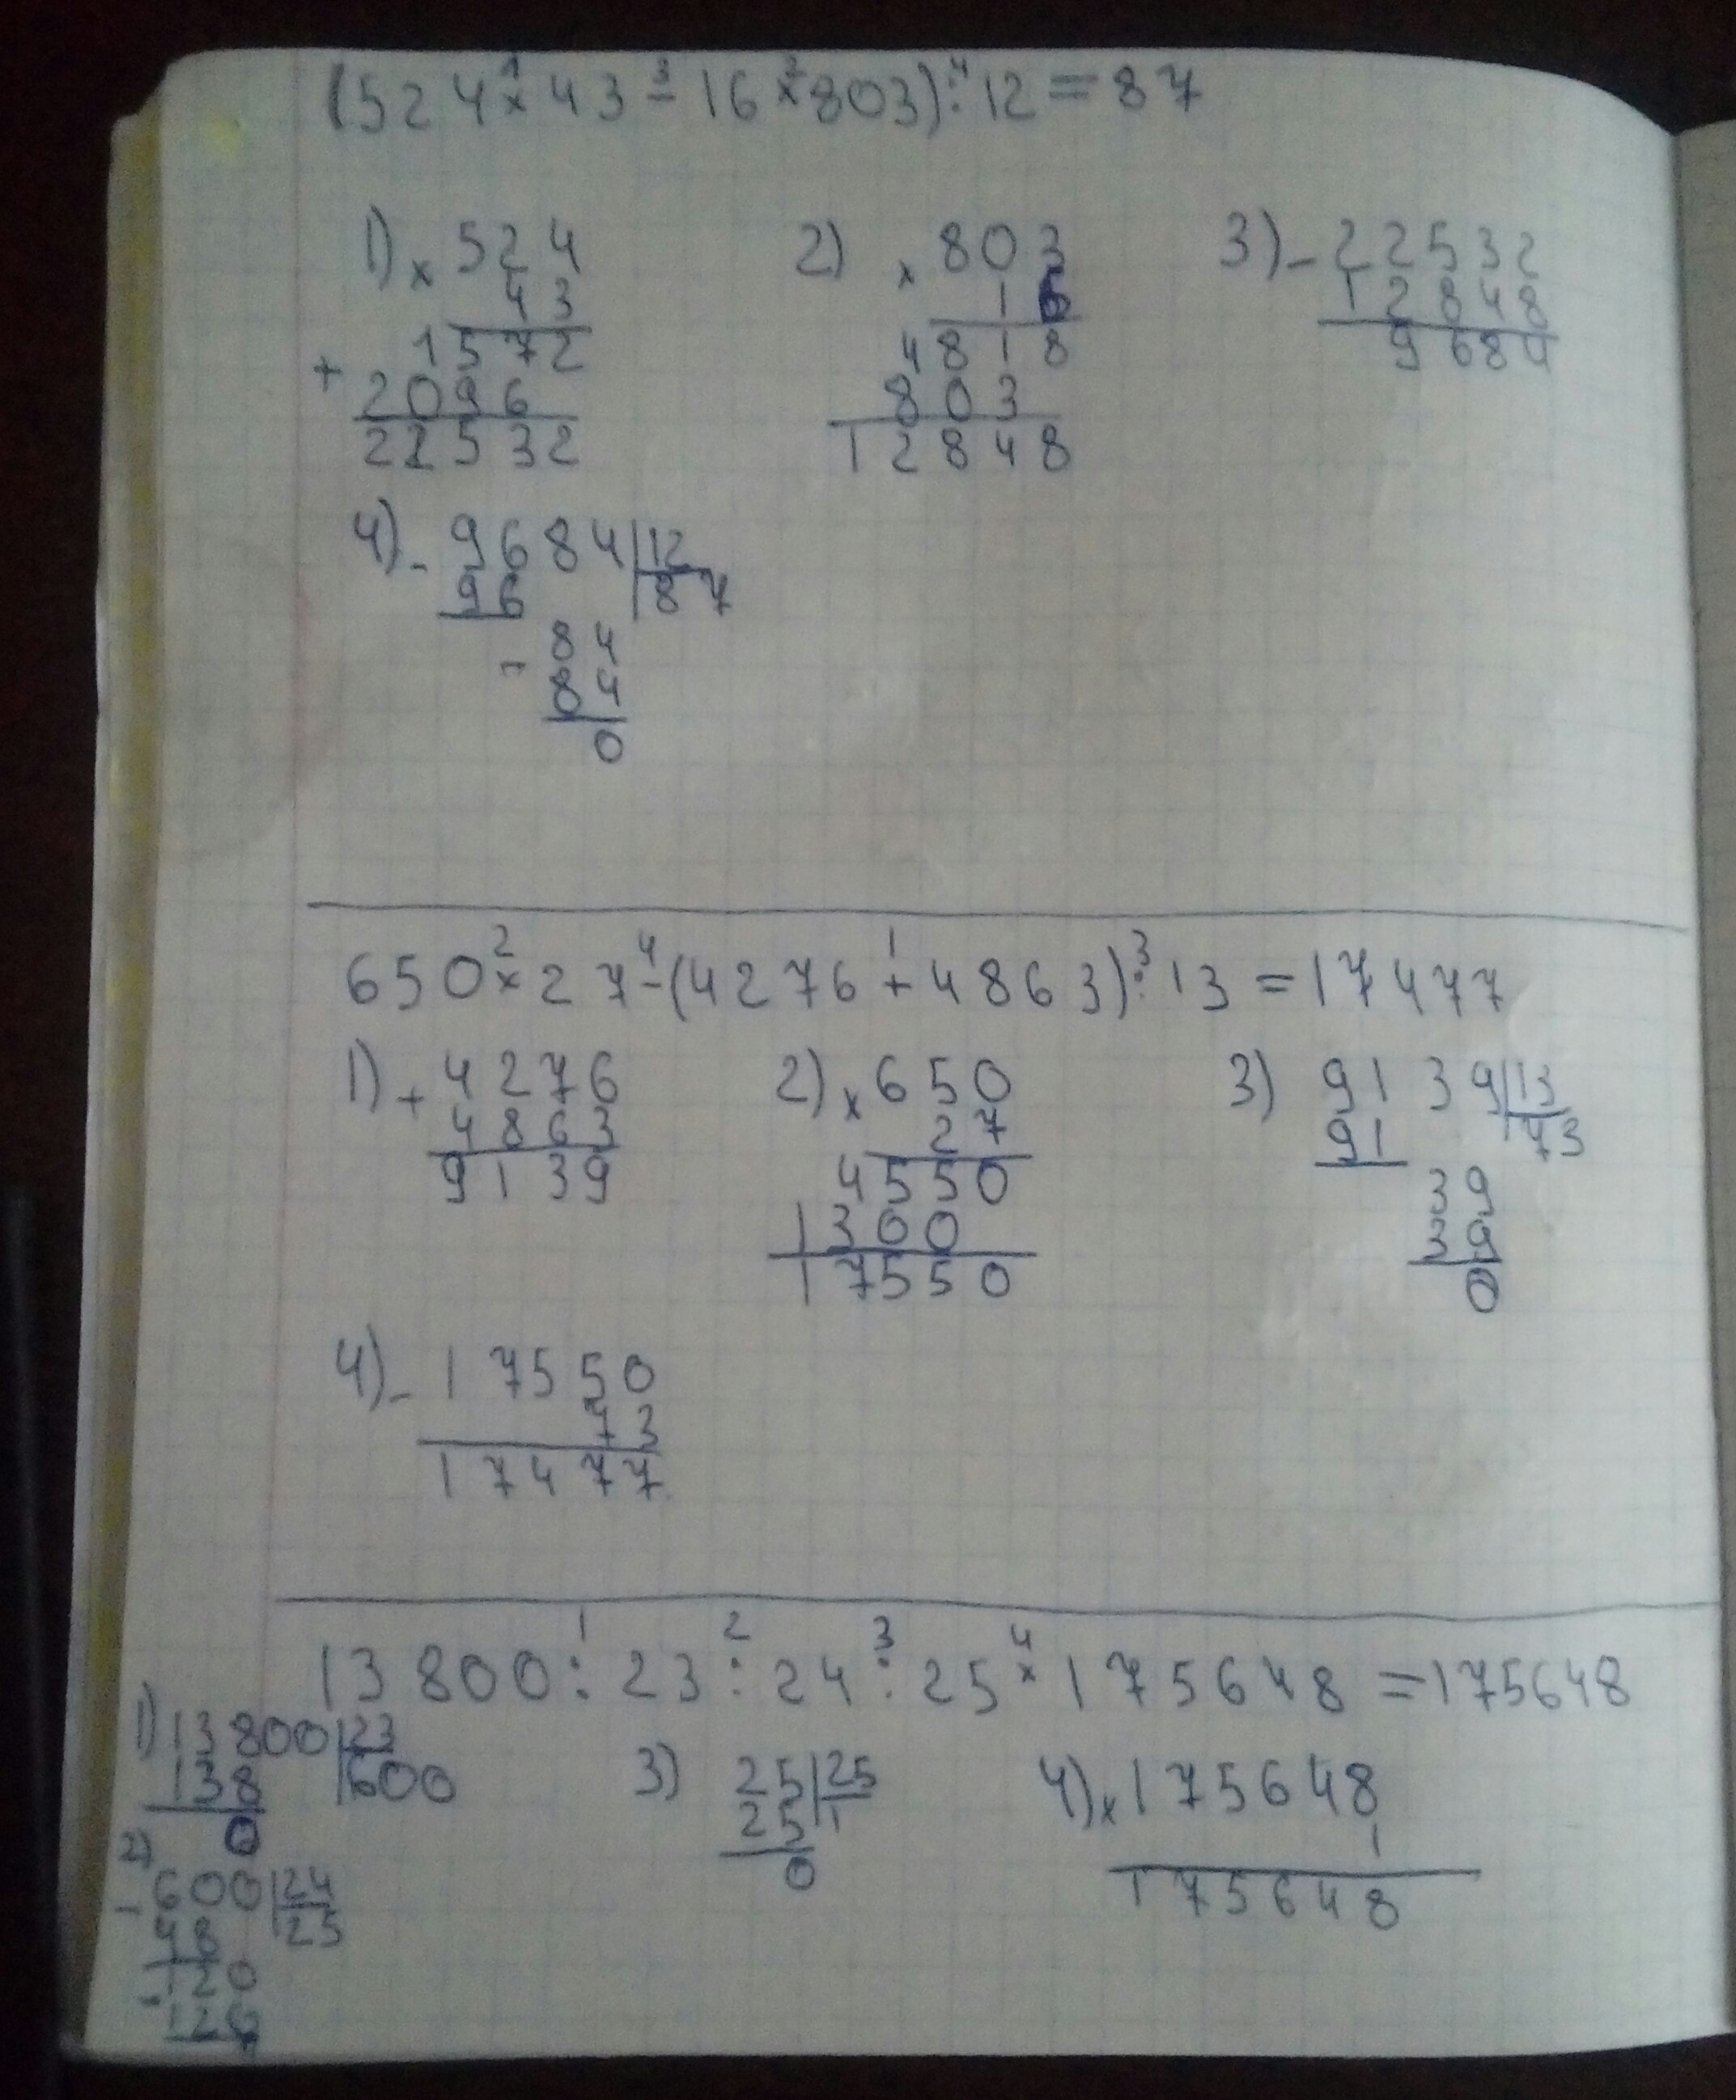 (524 × 43 - 16 × 803) : 12 = 87
1 3 2 4
1) × 524
43
1572
+ 2096
22532
2) × 803
16
4818
803
12848
3) - 22532
12848
9684
4) - 9684 | 12
96 | 87
- 84
84
0
650 × 27 - (4276 + 4863) : 13 = 17477
2 4 1 3
1) + 4276
4863
9139
2) × 650
27
4550
1300
17550
3) 9139 | 13
91 | 73
39
39
0
4) - 17550
73
17477
13800 : 23 : 24 : 25 × 175648 = 175648
1 2 3 4
1) 13800 | 23
138 | 600
0
2)
- 600 | 24
48 | 25
- 120
120
3) 25 | 25
25 | 1
0
4) × 175648
1
175648